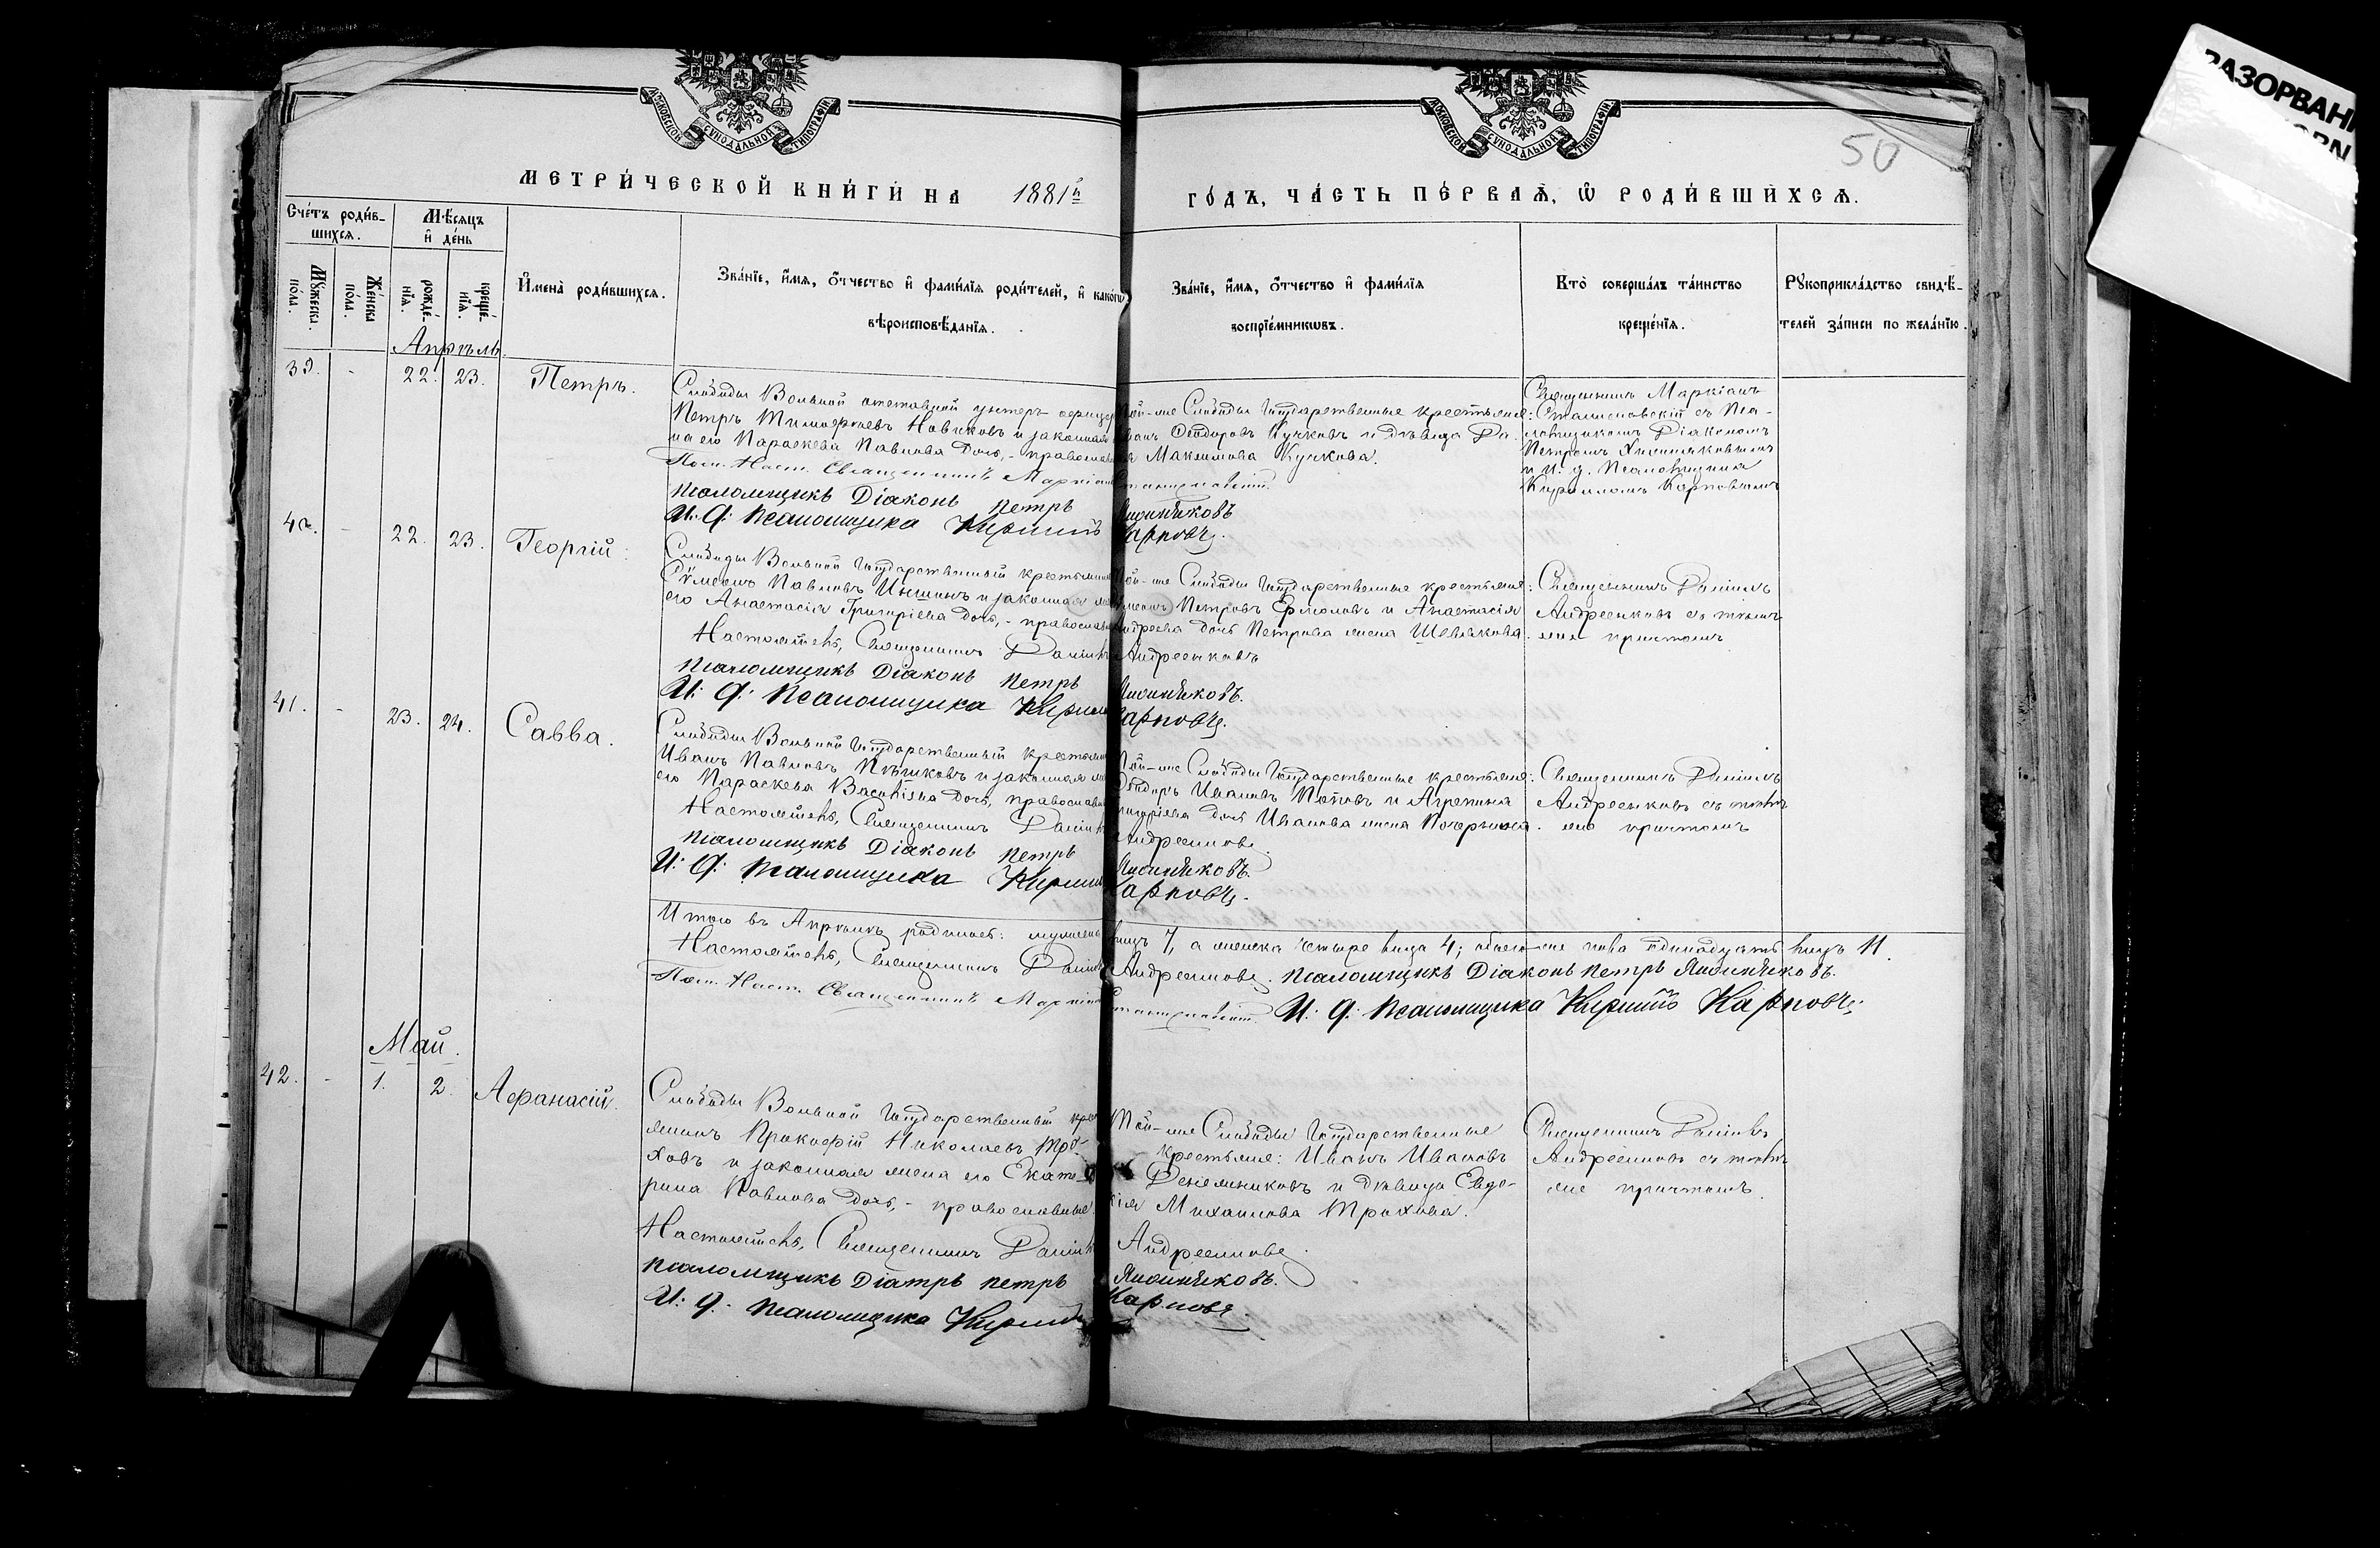 МОСКОВСКОЙ СѴНОДАЛЬНОЙ ТИПОГРАФІИ
МОСКОВСКОЙ СѴНОДАЛЬНОЙ ТИПОГРАФІИ
РАЗОРВАН
50
МЕТРИ́ЧЕСКОЙ КНИ́ГИ НА 1881й
ГО́ДЪ, ЧА́СТЬ ПЕ́РВАѦ, Ѡ РОДИ́ВШИХСѦ.
Сче́тъ роди́в-
шихсѧ.
Мꙋ́жеска по́ла.
Же́нска по́ла.
Мѣ́сѧцъ
и҆ де́нь
рожде́нїѧ.
креще́нїѧ.
И҆мена̀ роди́вшихсѧ.
Зва́нїе, и҆́мѧ, ѻ҆́тчество и҆ фами́лїѧ роди́телей, и҆ како́гѡ
вѣроисповѣ́данїѧ.
Зва́нїе, и҆́мѧ, ѻ҆́тчество и҆ фами́лїѧ
воспрїе́мникωвъ.
Кто̀ соверша́лъ та́инство
креще́нїѧ.
Рꙋкоприкла́дство свидѣ́-
телей за́писи по жела́нїю.
Апрѣль.
39. - 22. 23. Петръ.
Слободы Вольной отставной унтеръ офицеръ
Петръ Тимофѣевъ Новиковъ и законная
на его Параскева Павлова дочь, - православ
Пом. Наст. Священникъ Маркіанъ
Псаломщикъ Діаконъ Петръ
И: Д: Псаломщика Кириллъ
Той-же Слободы Государственные крестьяне:
Иванъ Ѳеодоровъ Кучковъ и дѣвица
Максимова Кучкова.
Лисинчковъ
Карповъ.
Священникъ Маркіанъ
Станиславскій съ Пса-
ломщикомъ Діакономъ
Петромъ
и И. д. Псаломщика
Кирилломъ Карповымъ
40. - 22. 23. Георгій.
Слободы Вольной Государственный крестьянинъ
Сѵмеонъ Павловъ и законная
его Анастасія Григоріева дочь, - православ
Настоятель, Священникъ Даніилъ
Псаломщикъ Діаконъ Петръ
И: Д: Псаломщика Кириллъ
Той-же Слободы Государственные крестьяне:
Петровъ Ермоловъ и Анастасія
Андреева дочь Петрова жена Шевлякова.
Андреенковъ
Карповъ.
Священникъ Даніилъ
Андреенковъ съ тѣмъ
же причтомъ
41. - 23. 24. Савва.
Слободы Вольной Государственный крестьян
Иванъ Павловъ и законная
его Параскева Васильева дочь, православ
Настоятель, Священникъ Даніилъ
Псаломщикъ Діаконъ Петръ
И: Д: Псаломщика Кириллъ
Той-же Слободы Государственные крестьяне:
Ѳеодоръ Ивановъ Поповъ и Агрепина
Григоріева дочь Иванова жена
Андреенковъ
Карповъ.
Священникъ Даніилъ
Андреенковъ съ тѣмъ
же причтомъ
Итого въ Апрѣлѣ родилось: мужеска
7, а женска четыре лица 4; обоего-же пола одинадцать лицъ 11.
Настоятель, Священникъ Даніилъ Андреенковъ. Псаломщикъ Діаконъ Петръ
Пом. Наст. Священникъ Маркіанъ
И: Д: Псаломщика Кириллъ Карповъ
Май.
42. - 1. 2. Аѳанасій.
Слободы Вольной Государственный кре
янинъ Прокофій Николаевъ Тро-
ховъ и законная жена его Екате-
рина Павлова дочь, - православные.
Настоятель, Священникъ Даніилъ
Псаломщикъ Петръ
И: Д: Псаломщика Кириллъ
Той-же Слободы Государственные
крестьяне: Иванъ Ивановъ
и дѣвица Евдо-
кія Михайлова Трохова.
Андреенковъ
Карповъ.
Священникъ Даніилъ
Андреенковъ съ тѣмъ
же причтомъ.